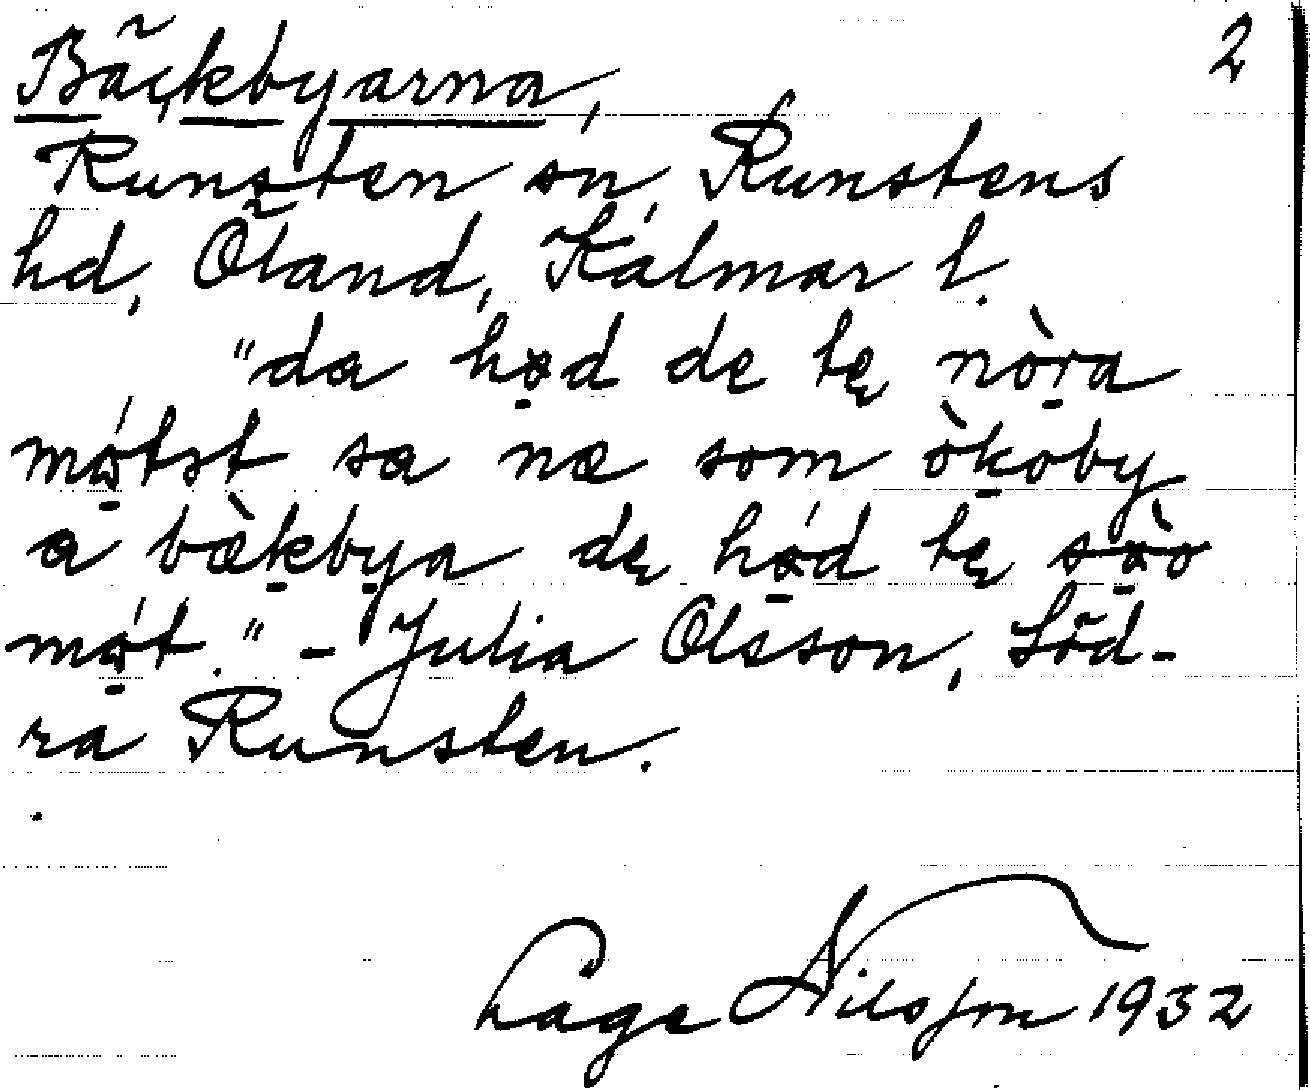 Bäckbyarna, 2
Runsten sn, Runstens
hd, Öland, Kalmar l.
"da hød de tę nòra
mǿtst sa næ som òkoby
a bæ̀kbya dę hǿd tę sø̀o
mǿt." - Julia Olsson, Söd-
ra Runsten.
Lage Nilsson 1932